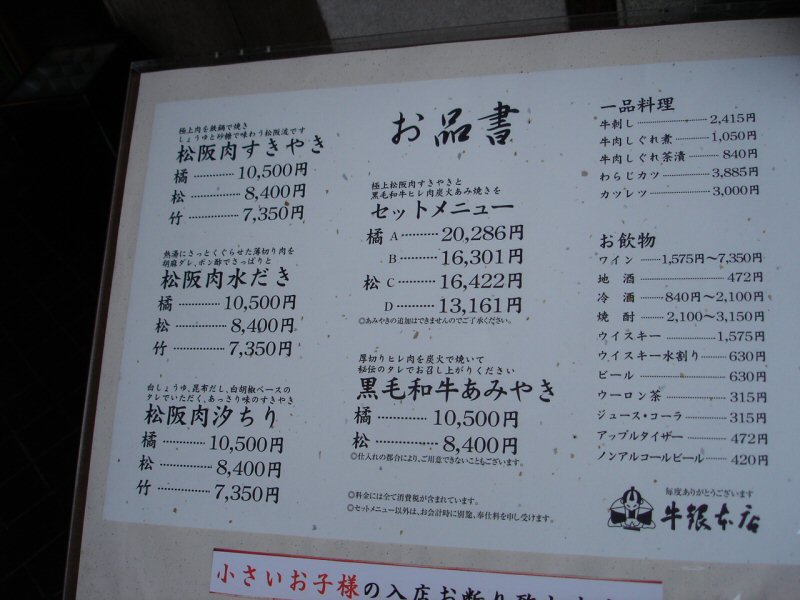 お品書
極上肉を鉄鍋で焼き
しょうゆと砂糖で味わう松阪流です
松阪肉すきやき
橘 ………… 10,500円
松 ………… 8,400円
竹 ………… 7,350円
熱湯にさっとくぐらせた薄切り肉を
胡麻ダレ、ポン酢でさっぱりと
松阪肉水だき
橘 ………… 10,500円
松 ………… 8,400円
竹 ………… 7,350円
白しょうゆ、昆布だし、白胡椒ベースの
タレでいただく、あっさり味のすきやき
松阪肉汐ちり
橘 ………… 10,500円
松 ………… 8,400円
竹 ………… 7,350円
極上松阪肉すきやきと
黒毛和牛ヒレ肉炭火あみ焼きを
セットメニュー
橘 A ………… 20,286円
B ………… 16,301円
松 C ………… 16,422円
D ………… 13,161円
◎あみやきの追加はできませんのでご了承ください。
厚切りヒレ肉を炭火で焼いて
秘伝のタレでお召し上がりください
黒毛和牛あみやき
橘 ………… 10,500円
松 ………… 8,400円
◎仕入れの都合により、ご用意できないこともございます。
◎料金には全て消費税が含まれています。
◎セットメニュー以外は、お会計時に別途、奉仕料を申し受けます。
一品料理
牛刺し ………… 2,415円
牛肉しぐれ煮 ………… 1,050円
牛肉しぐれ茶漬 ………… 840円
わらじカツ ………… 3,885円
カツレツ ………… 3,000円
お飲物
ワイン ……1,575円〜7,350円
地酒 ………… 472円
冷酒 ……840円〜2,100円
焼酎 ……2,100〜3,150円
ウイスキー ………… 1,575円
ウイスキー水割り ……… 630円
ビール ………… 630円
ウーロン茶 ………… 315円
ジュース・コーラ ………… 315円
アップルタイザー ………… 472円
ノンアルコールビール …… 420円
毎度ありがとうございます
牛銀本店
小さいお子様の入店お断り致し